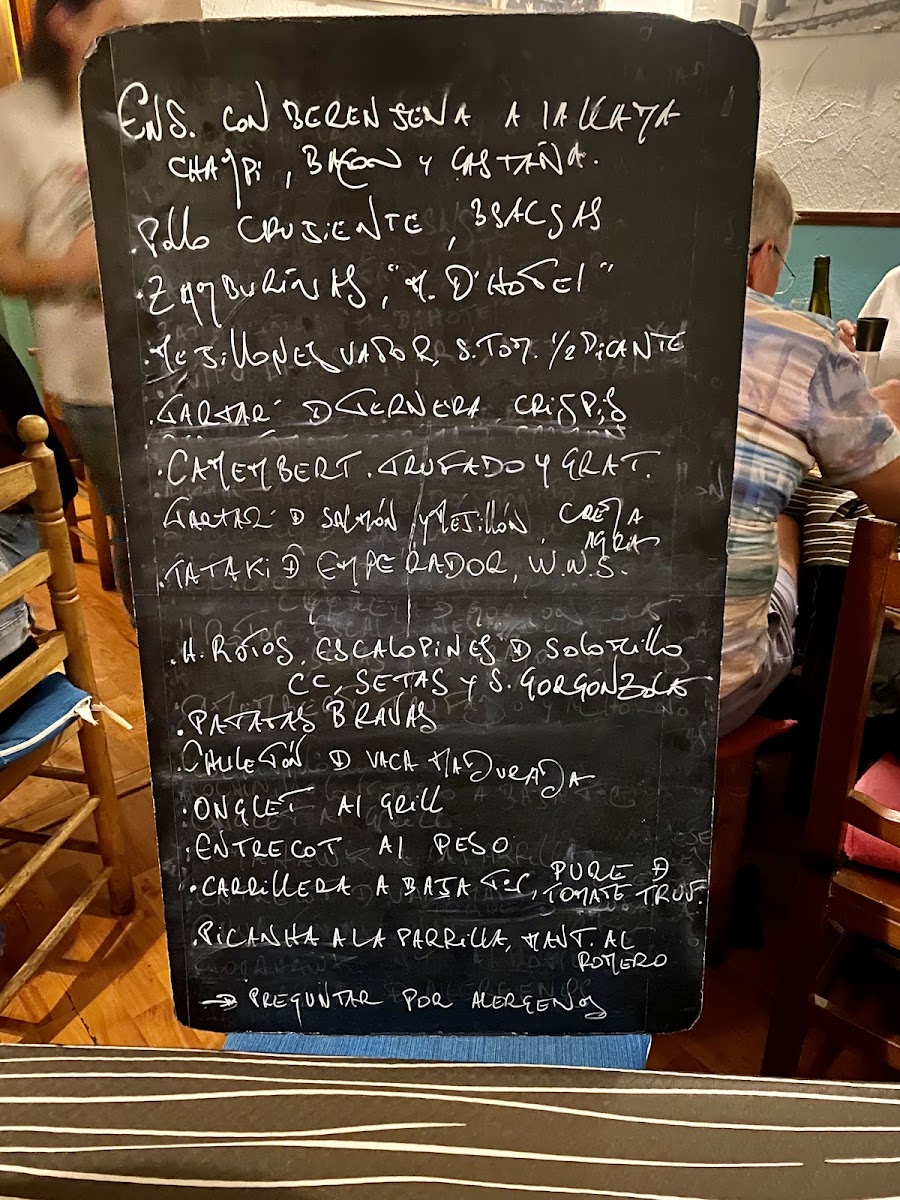 ENS. CON BERENJENA A LA LLAMA
CHAMPI, BACON Y CASTAÑA.
.POLLO CRUJIENTE, BSACSAS
.ZAMBURIÑAS, "M. D'HOTEL"
.MEJILLONES VAPOR, S. TOM. 1/2 PICANTE
.TARTAR D TERNERA CRISPIS
.CAMEMBERT. TRUFADO Y GRAT.
TARTAR D SALMÓN Y MEJILLÓN, CREMA
AGRA
.TATAKI D EMPERADOR, W.N.S.
.H. ROTOS. ESCALOPINES D SOLOMILLO
CC, SETAS Y S. GORGONZOLA
.PATATAS BRAVAS
.CHULETÓN D VACA MADURADA
.ONGLET AL GRILL
.ENTRECOT AL PESO
.CARRILLERA A BAJA Tª, PURE D
TOMATE TRUF.
.PICANHA A LA PARRILLA, MANT. AL
ROMERO
→ PREGUNTAR POR ALERGENOS